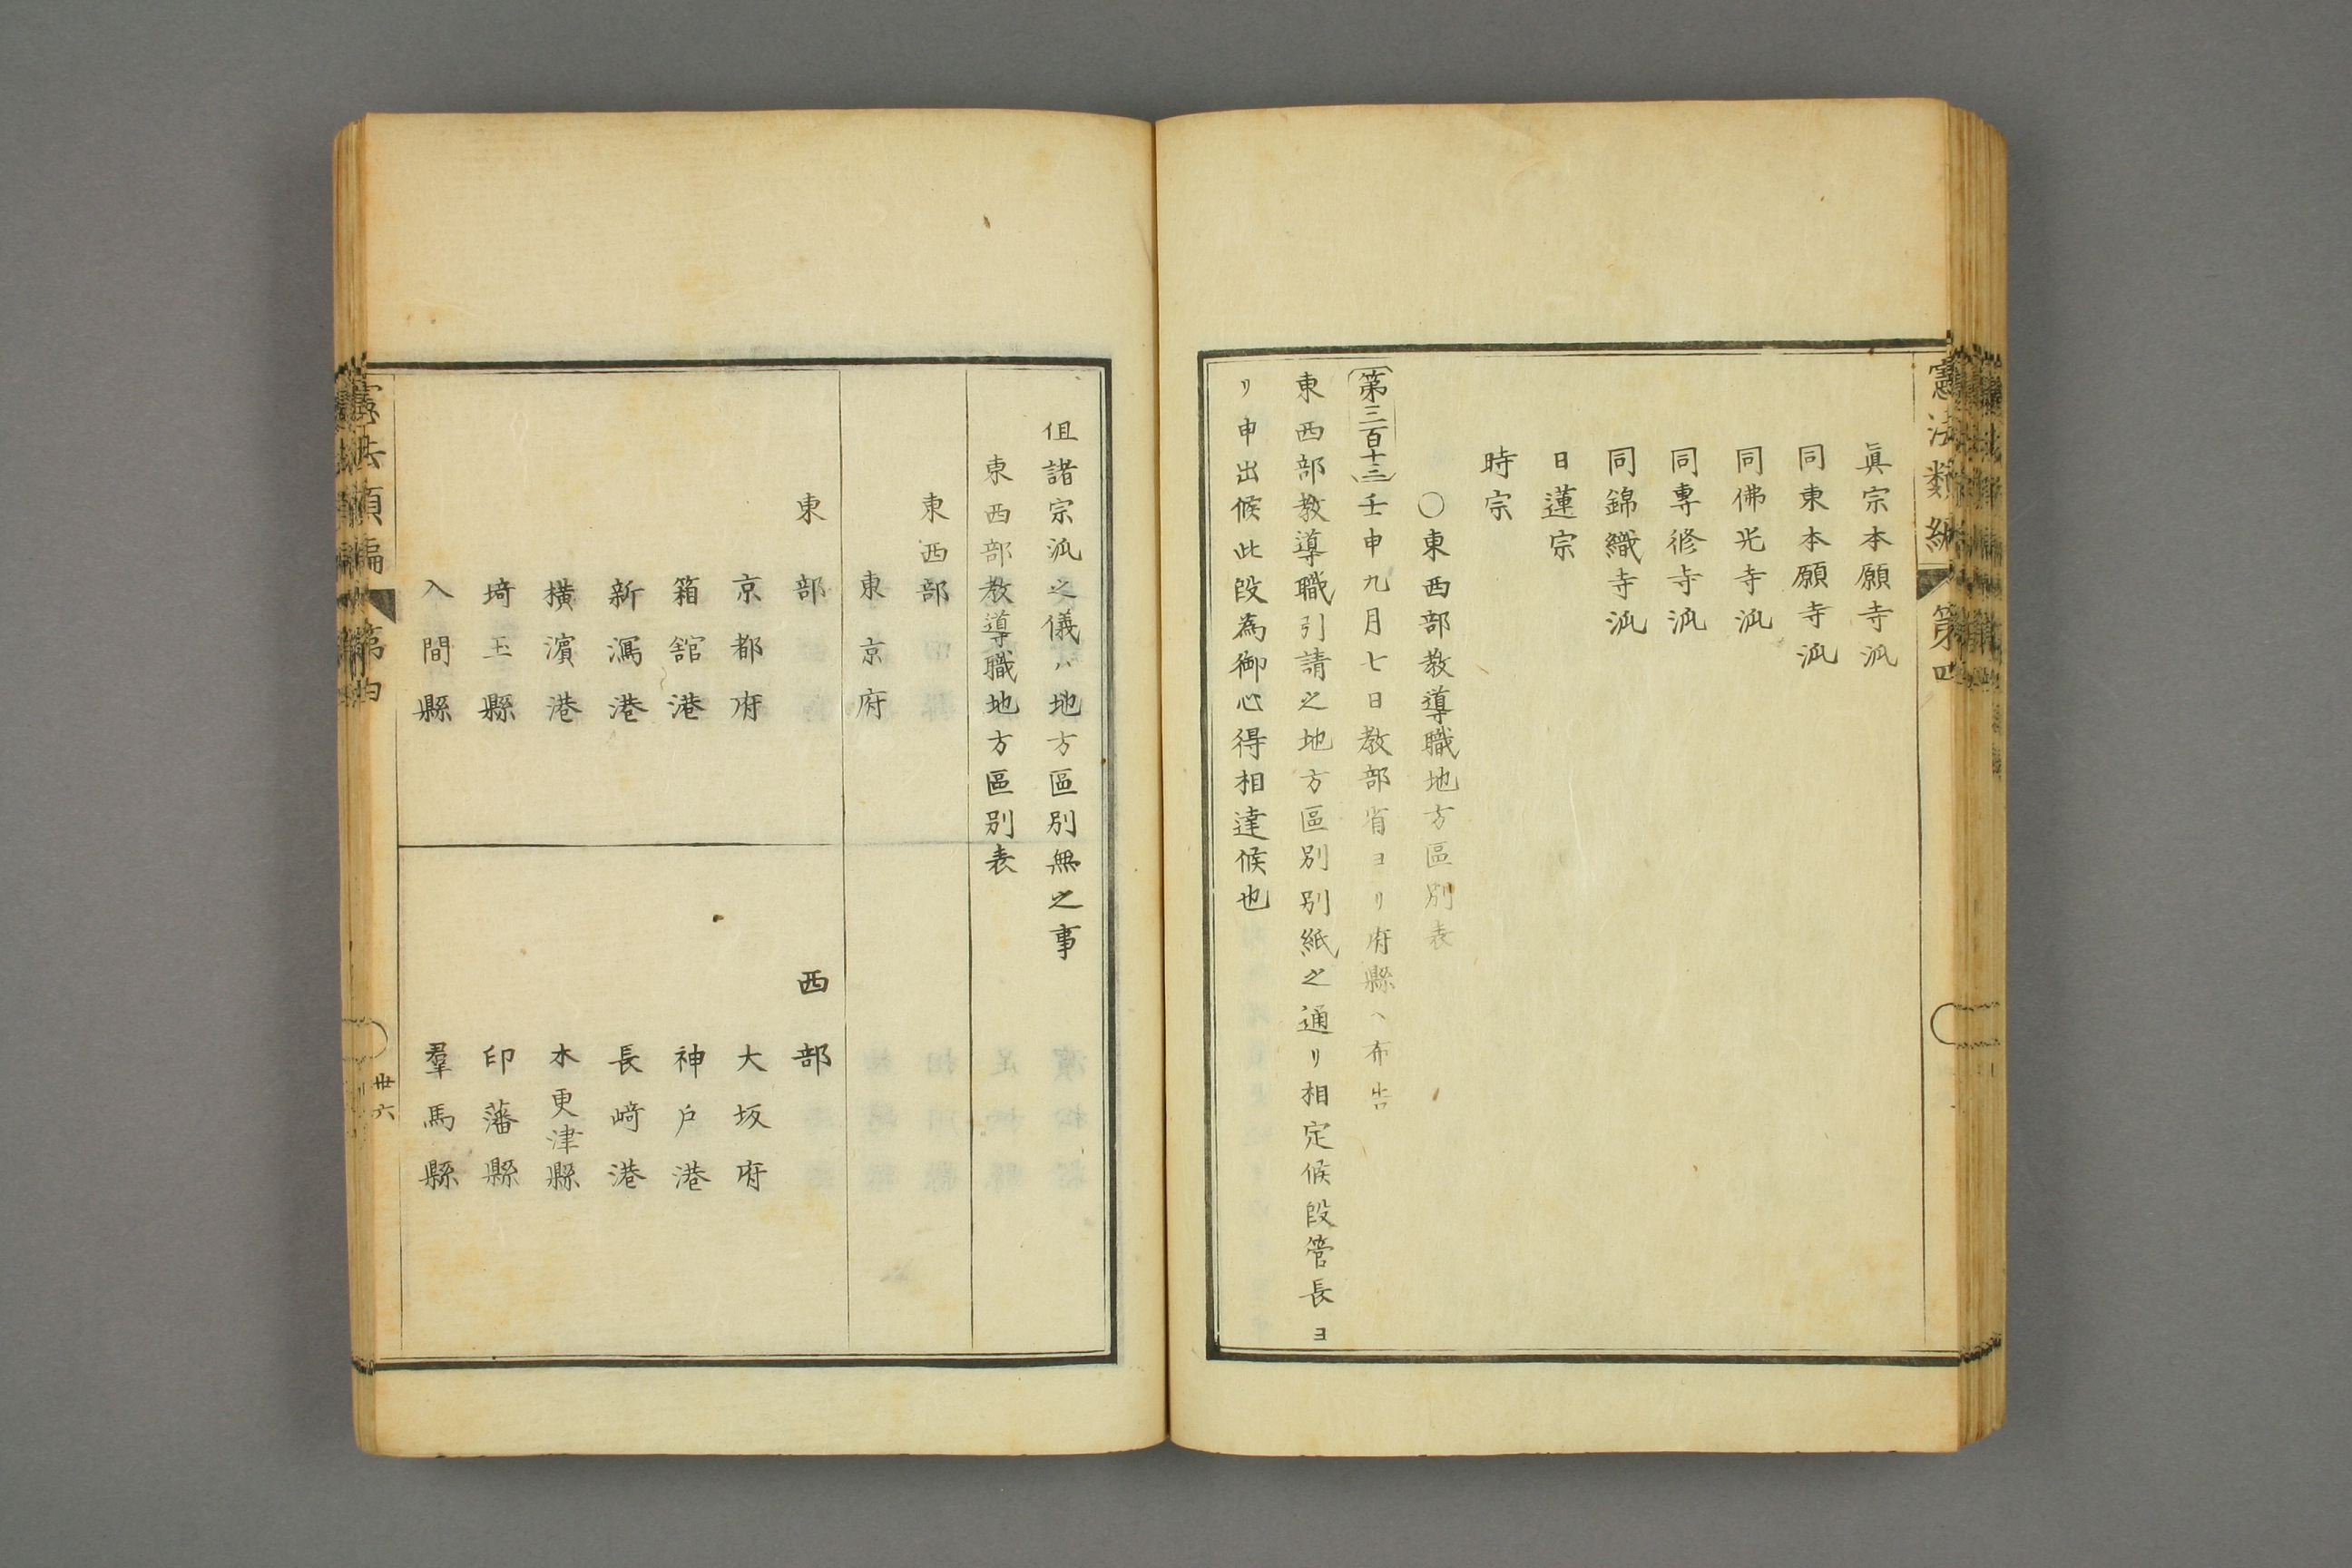 憲法類編 第四
眞宗本願寺派
同東本願寺派
同佛光寺派
同專修寺派
同錦織寺派
日蓮宗
時宗
〇東西部教導職地方區別表
第三百十三 壬申九月七日教部省ヨリ府縣ヘ布告
東西部教導職引請之地方區別別紙之通リ相定候段管長ヨ
リ申出候此段為御心得相達候也
但諸宗派之儀ハ地方區別無之事
東西部教導職地方區別表
東西部
東京府
東部
西部
京都府
大坂府
箱舘港
神戸港
新潟港
長﨑港
横濱港
木更津縣
埼玉縣
印藩縣
入間縣
羣馬縣
憲法類編 第四
丗六